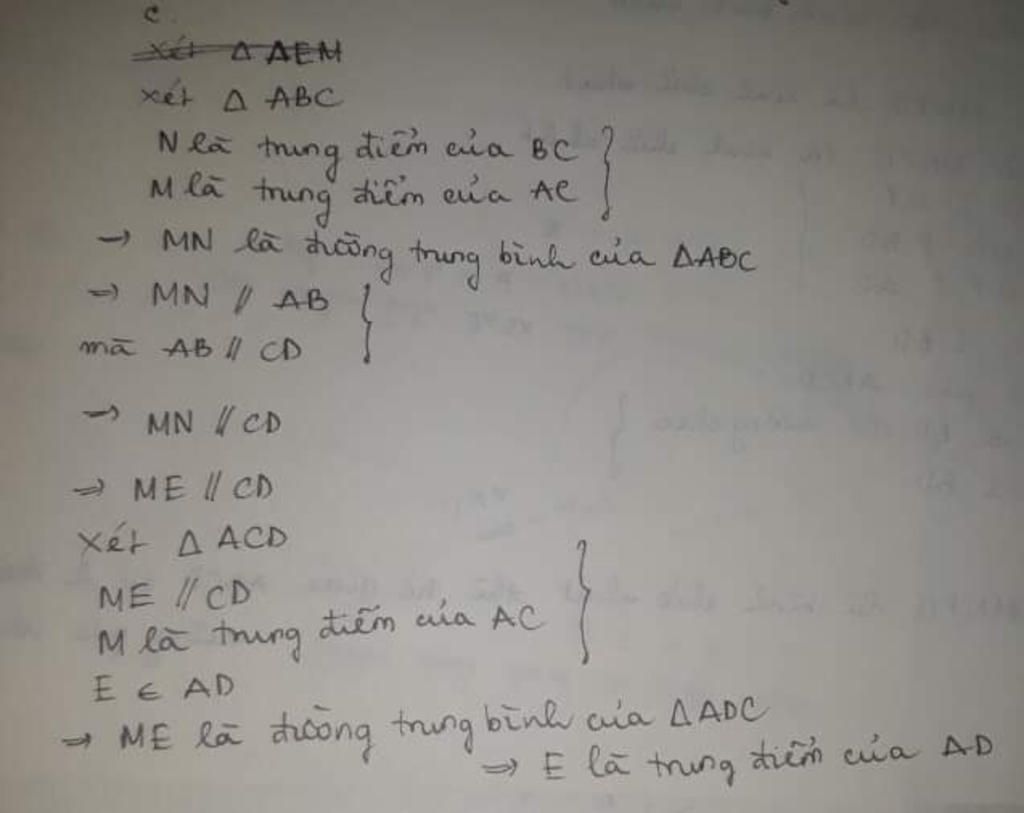 c.
xét Δ AEM
xét Δ ABC
N là trung điểm của BC
M là trung điểm của AC
→ MN là đường trung bình của ΔABC
→ MN // AB
mà AB // CD
→ MN // CD
⇒ ME // CD
Xét Δ ACD
ME // CD
M là trung điểm của AC
E ∈ AD
⇒ ME là đường trung bình của ΔADC
⇒ E là trung điểm của AD